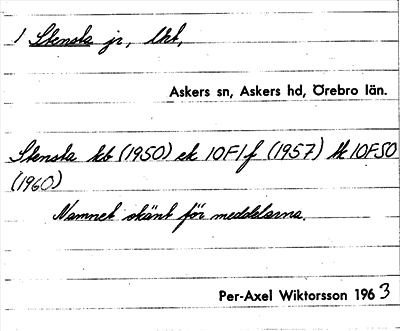 1 Stensta jr, Ukt,
Askers sn, Askers hd, Örebro län.
Stensta kb (1950) ek 10F1f (1957) tk 10F SO
(1960)
Namnet okänt för meddelarna.
Per-Axel Wiktorsson 1963